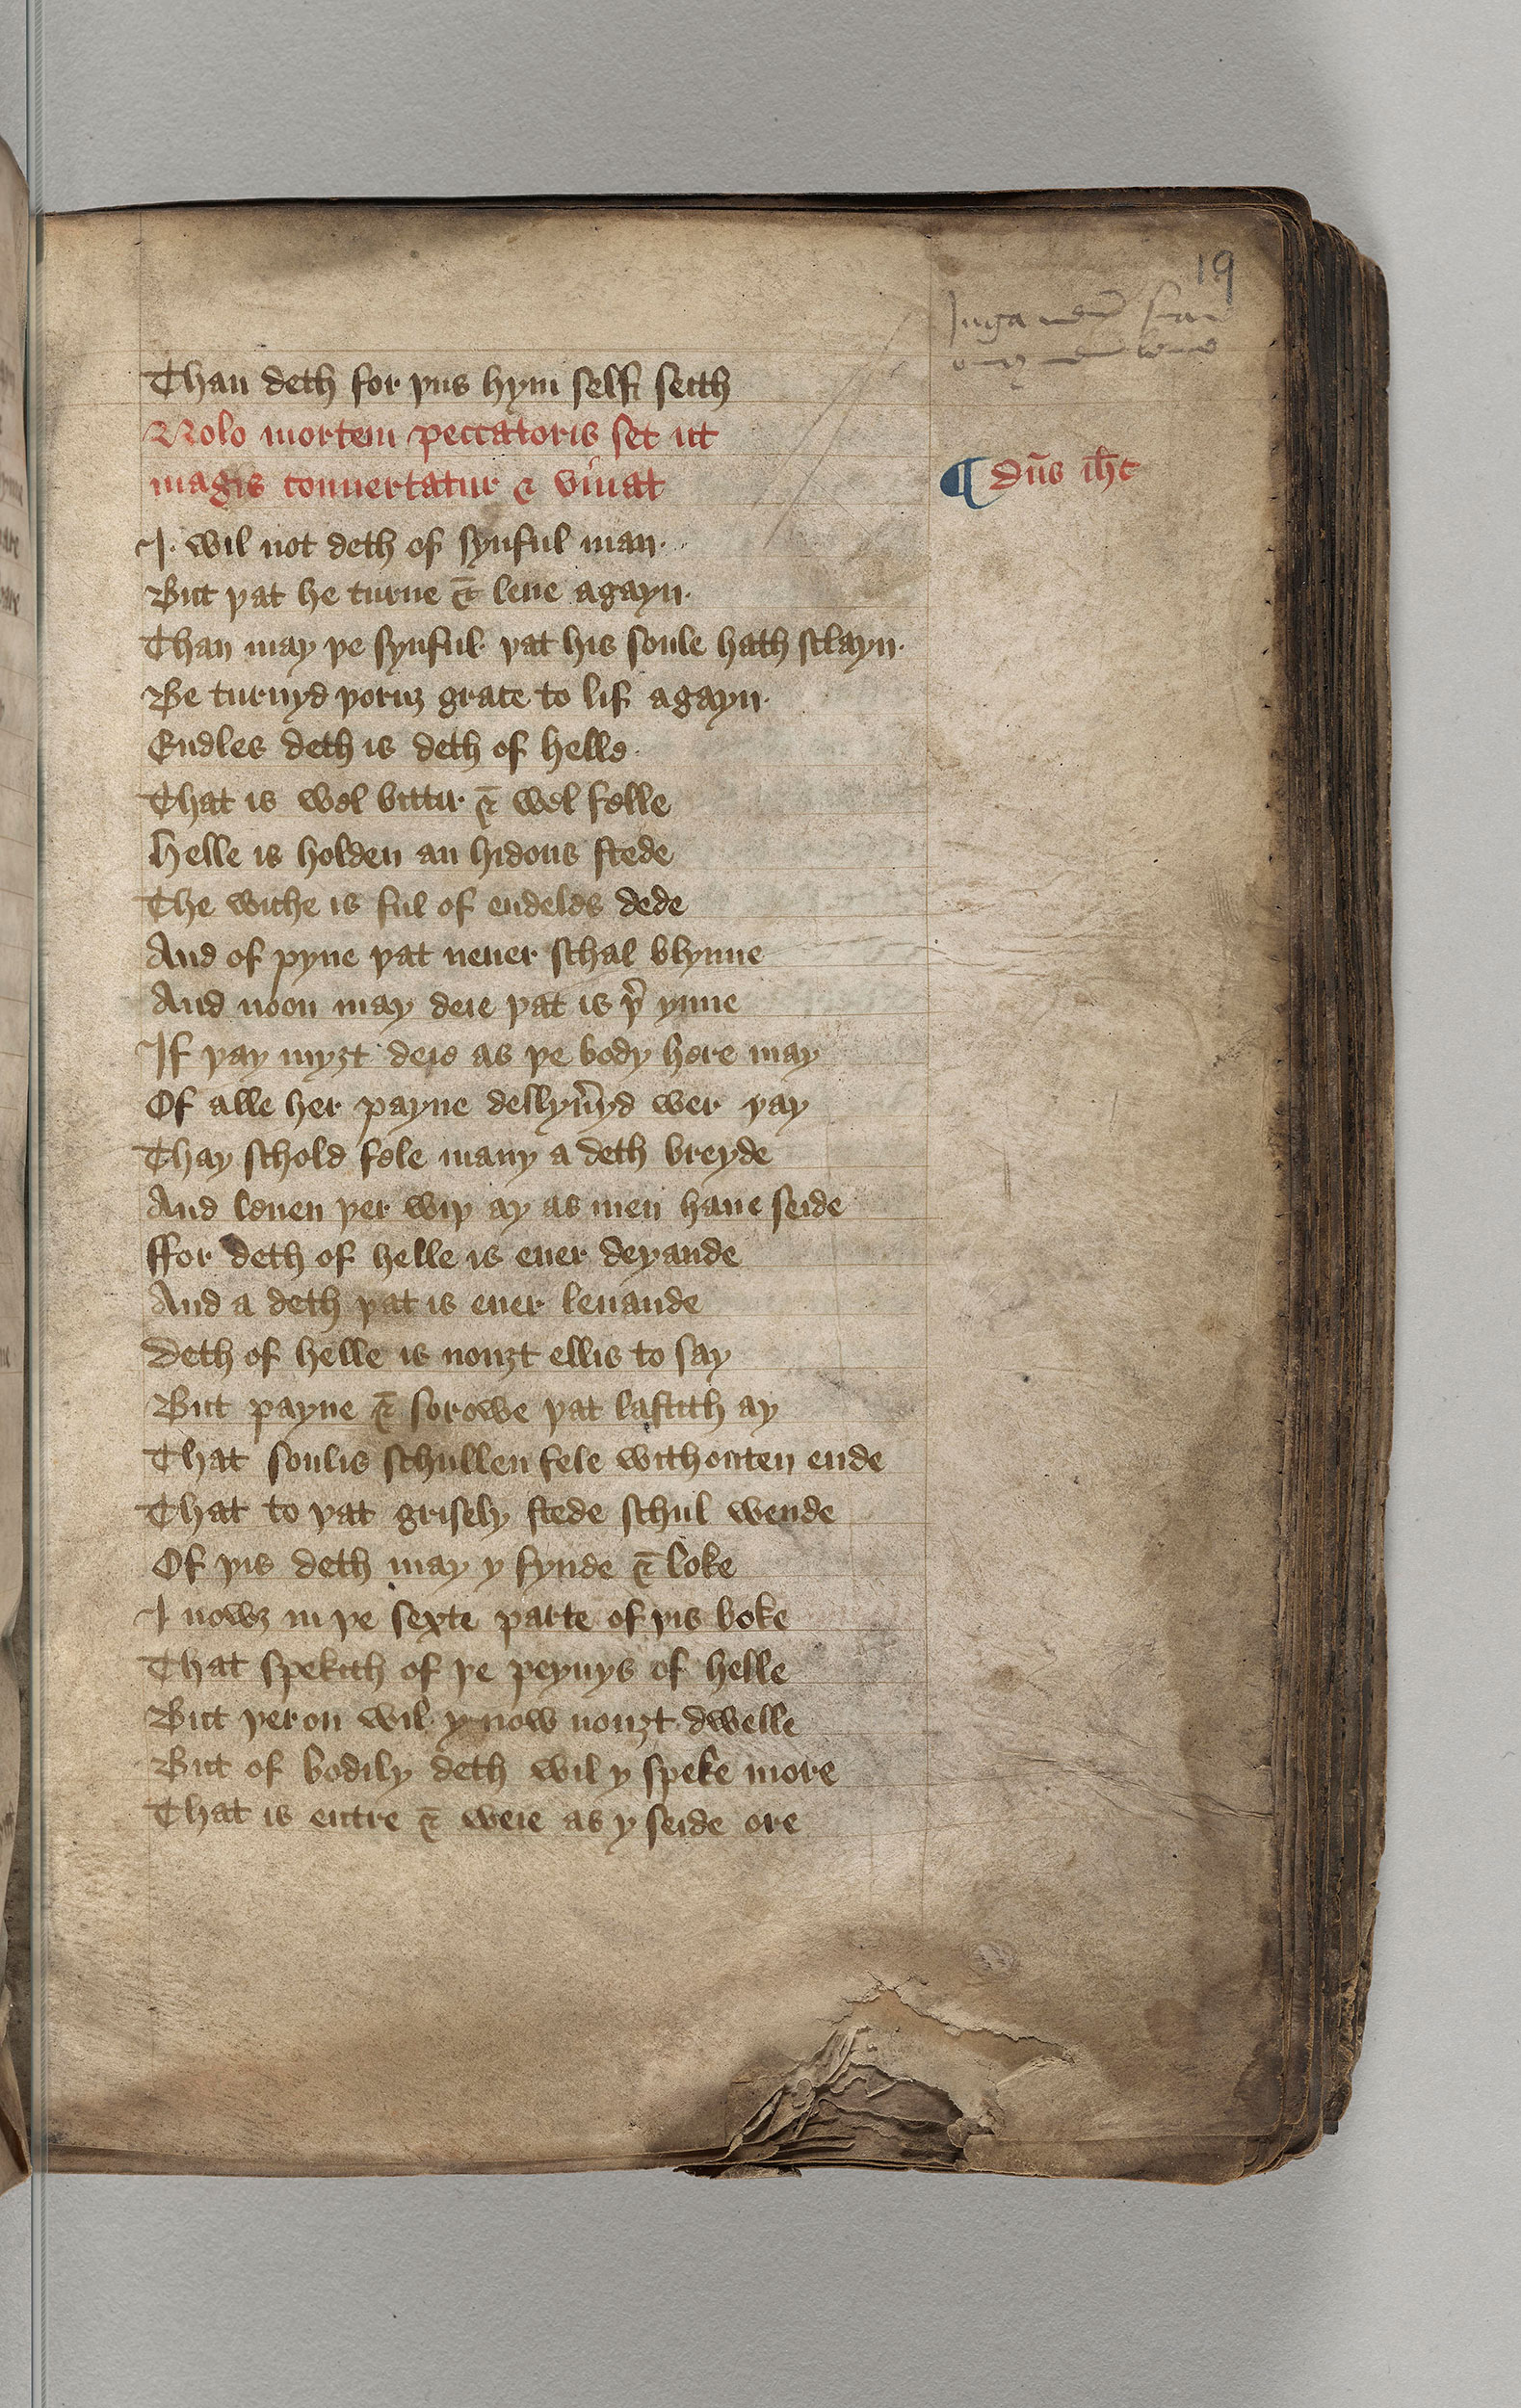 19
Than deth for þus hym self seith
Nolo mortem peccatoris set ut
magis conuertatur & viuat
¶ dn̄s ih̄c
I. wil not deth of synful man.
But þat he turne & leue agayn.
Than may þe synful þat his soule hath sclayn.
Be turnyd þoruȝ grace to lif agayn.
Endles deth is deth of helle.
That is wel bittur & wel felle
Helle is holden an hidous stede
The wiche is ful of endeles dede
And of pyne þat neuer schal blynne
And noon may deie þat is þ̉ ynne
If þay myȝt deie as þe body here may
Of alle her payne delyu̓yd wer þay
Thay schold fele many a deth breyde
And leuen þer wiþ ay as men haue seide
ffor deth of helle is euer deyande
And a deth þat is euer leuande
Deth of helle is nouȝt ellis to say
But payne & sorowe þat lastith ay
That soulis schullen fele withouten ende
That to þat grisely stede schul wende
Of þis deth may y fynde & loke
I nowȝ in þe sexte parte of þis boke
That spekith of þe peynys of helle
But þer on wil y now nouȝt dwelle
But of bodily deth wil y speke more
That is entre & weie as y seide ore